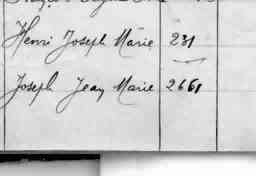 Henri Joseph Marie 231
Joseph Jean Marie 2661